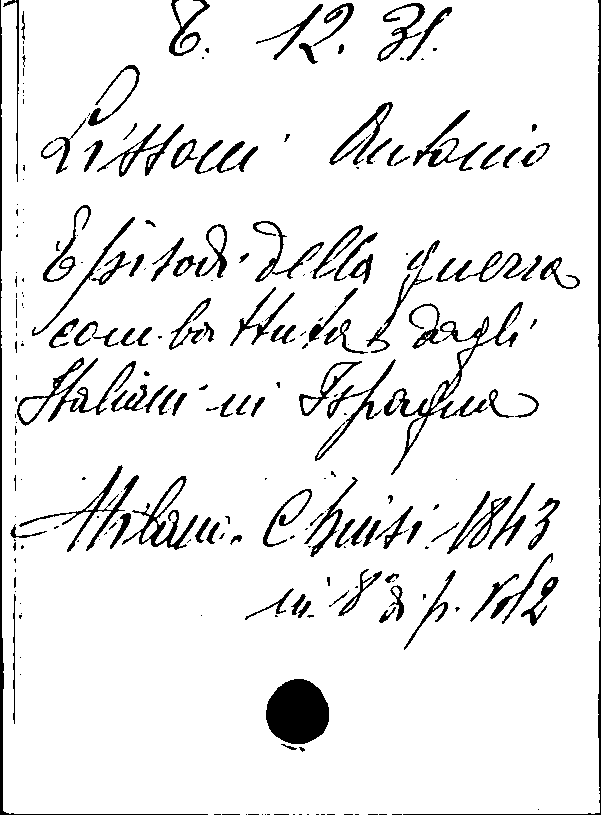 E. 12. 31.
Lissoni Antonio
Episodi della guerra
combattuta dagli
Italiani in Ispagna
Milano. Chiusi 1843
in 8° di p.